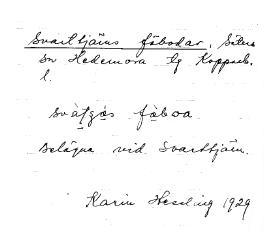 Svarttjärns fäbodar, Säters
sn Hedemora tg Kopparb.
l.
svàţgǫs fǝ̀boa
belägna vid Svarttjärn.
Karin Hessling 1929